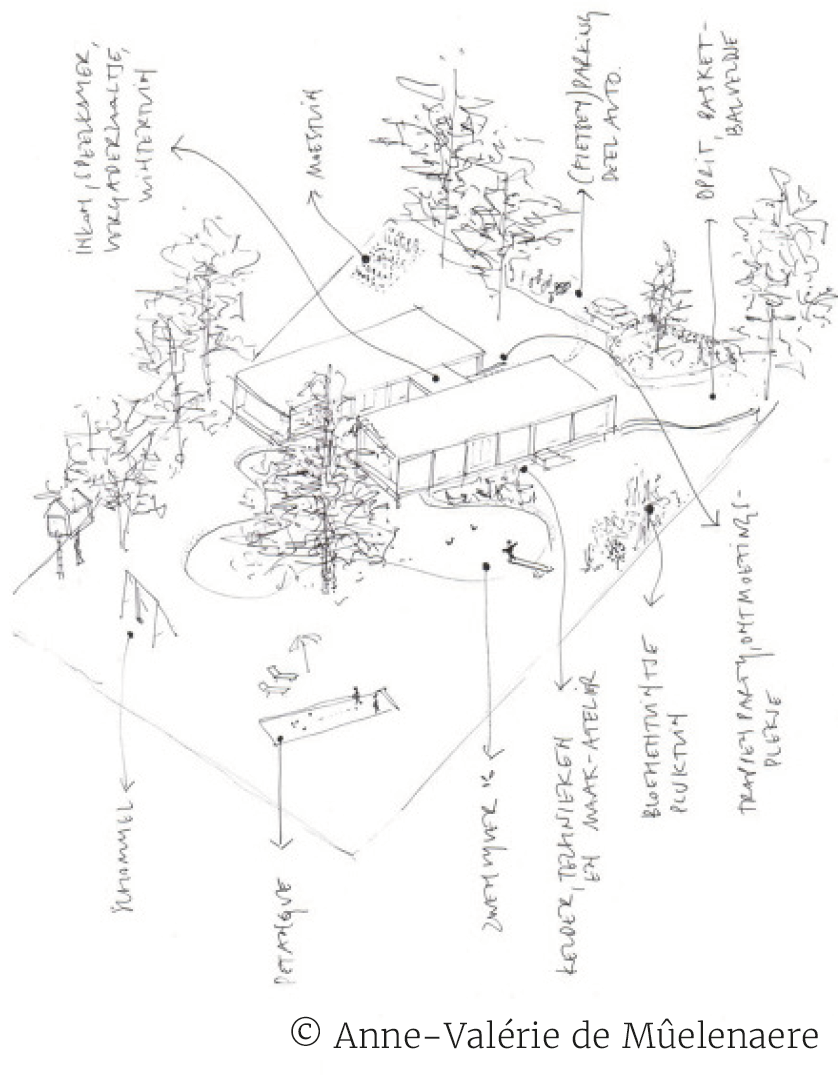 INKOM, SPEELKAMER,
VERGADERZAALTJE,
WINTERTUIN
MOESTUIN
(FIETSEN)PARKING
DEELAUTO.
OPRIT, BASKET-
BALVELDJE
SCHOMMEL
PETANQUE
ZWEMVIJVER
KELDER, TECHNIEKEN
EN MAAK-ATELIER
BLOEMENTUINTJE
PLUKTUIN
TRAPPEN PARTY, ONTMOETINGS-
PLEKJE
© Anne-Valérie de Mûelenaere